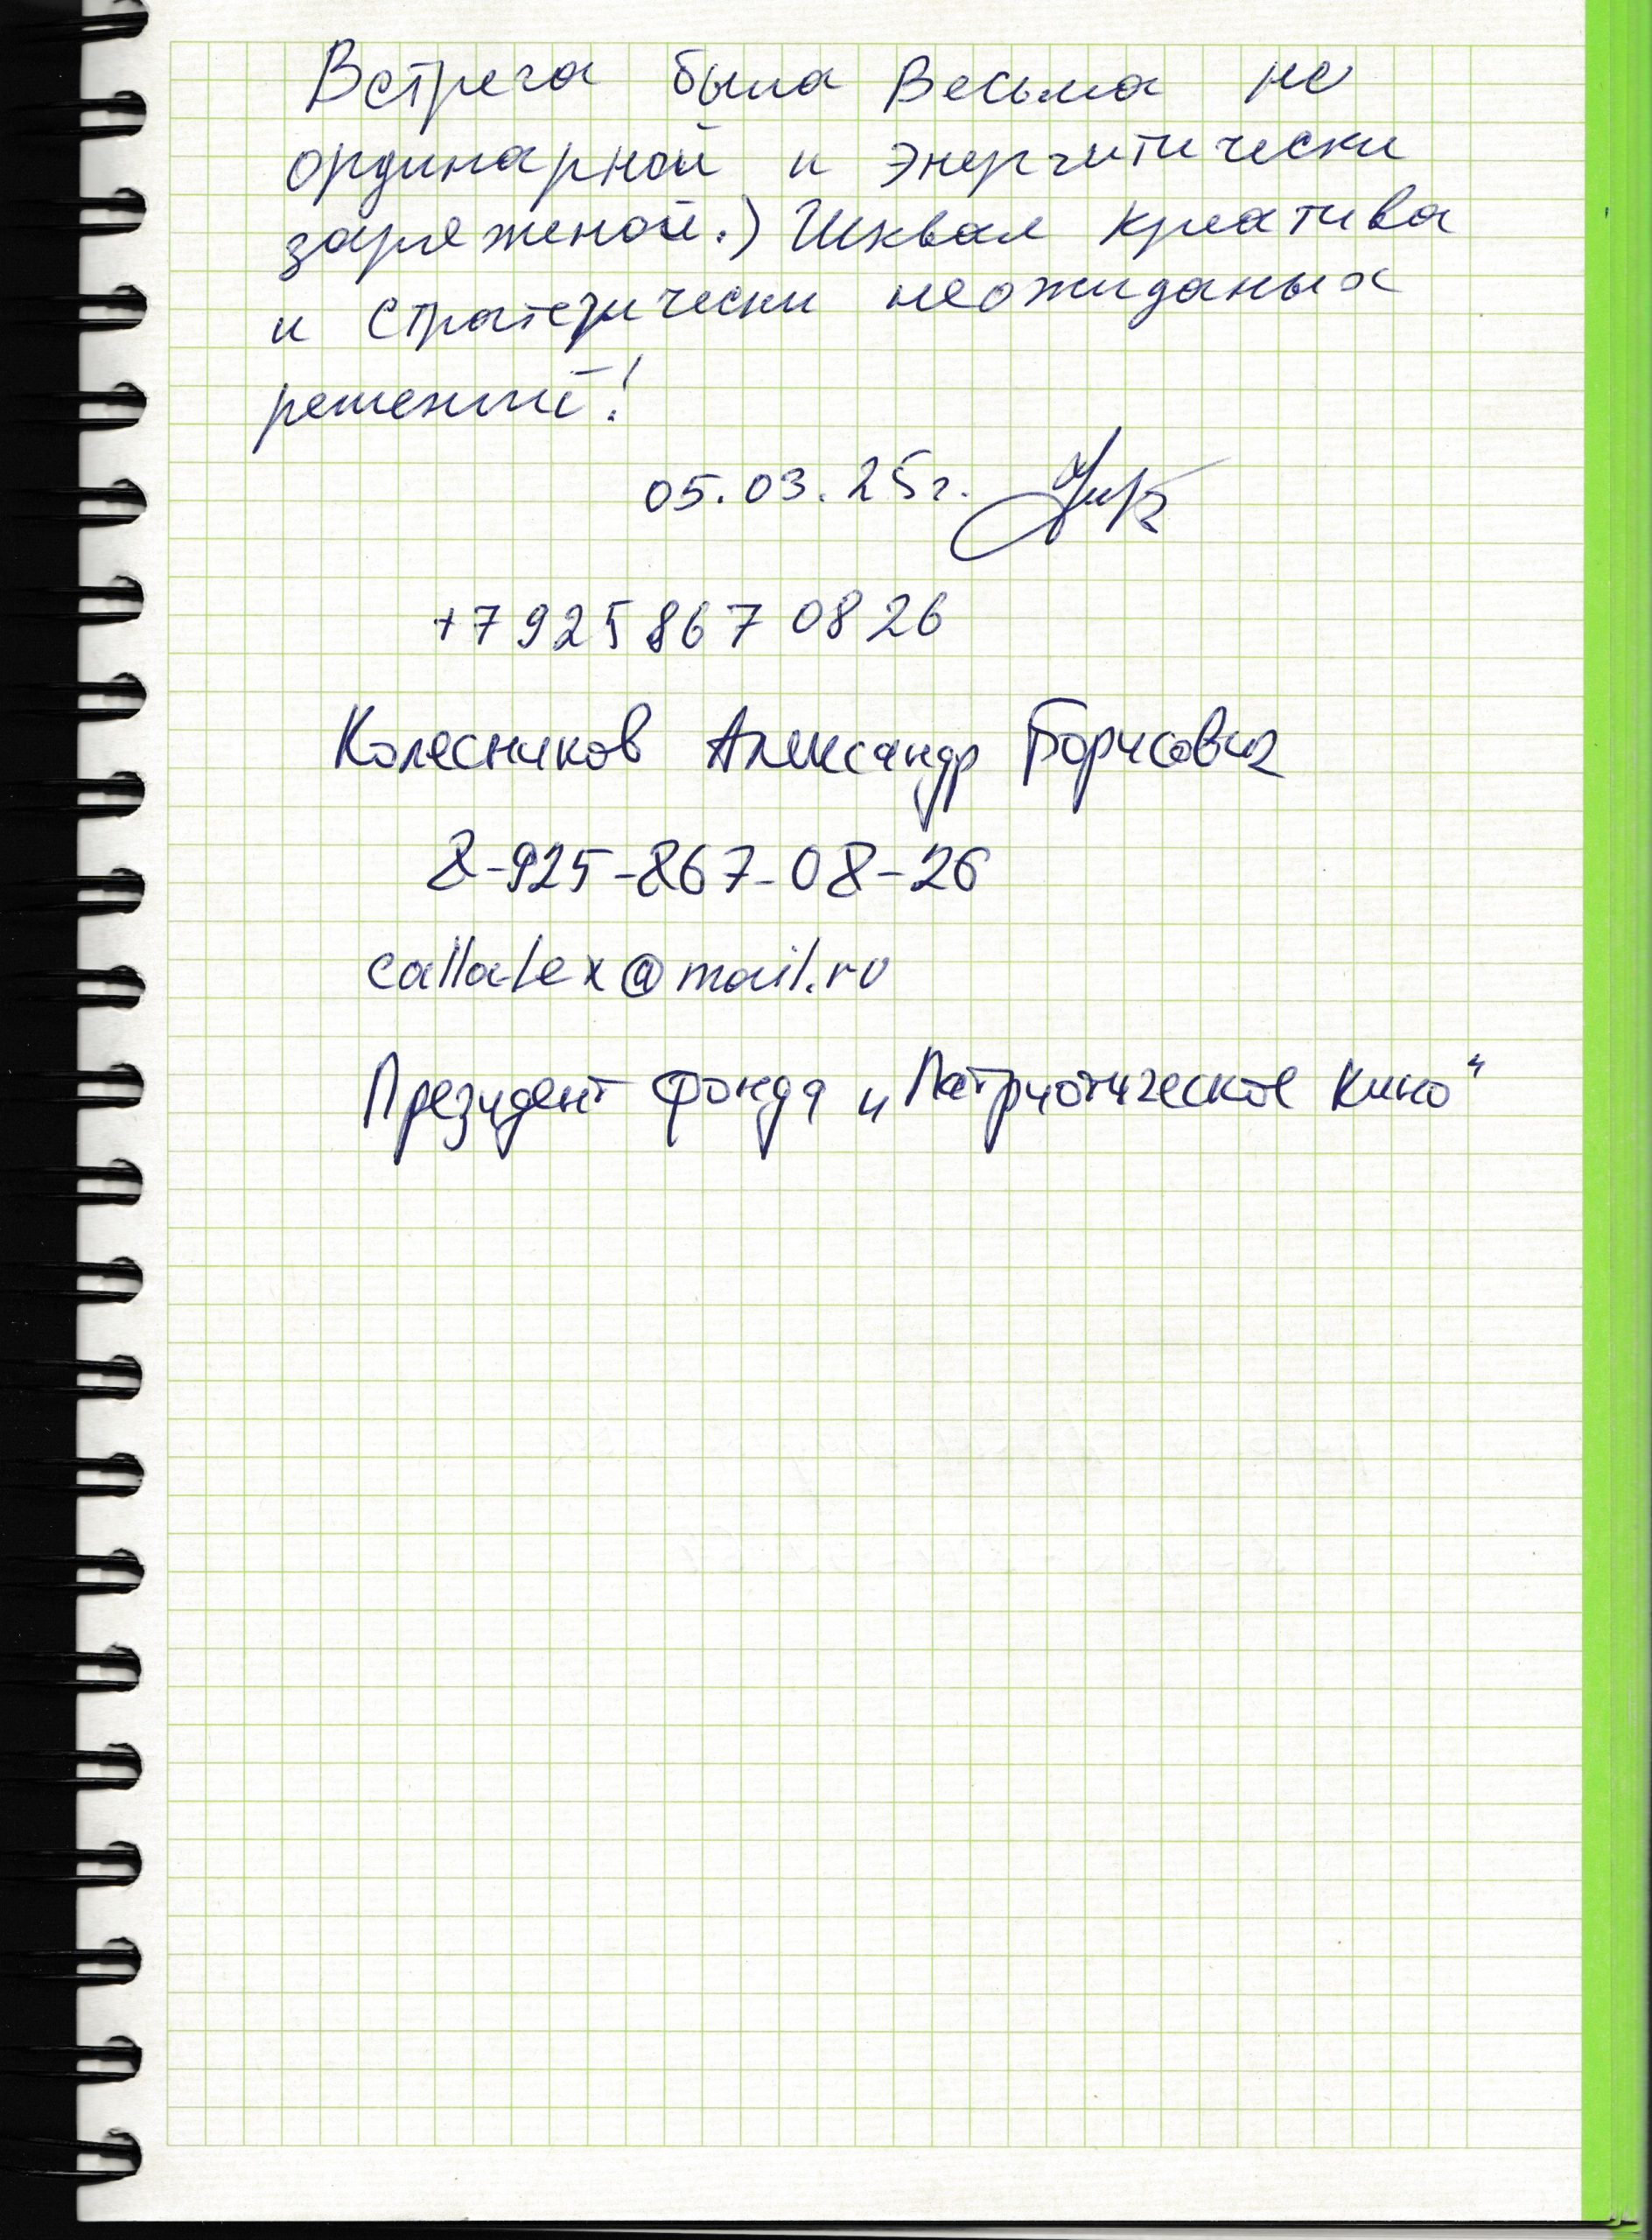 Встреча была Весьма не
ординарной и энергитически
заряженой.) Шквал креатива
и стратегически неожиданых
решений!
05.03.25г.
+7 925 867 08 26
Колесников Александр Борисович
8-925-867-08-26
callalex@mail.ru
Президент Фонда „Патриотическое кино“